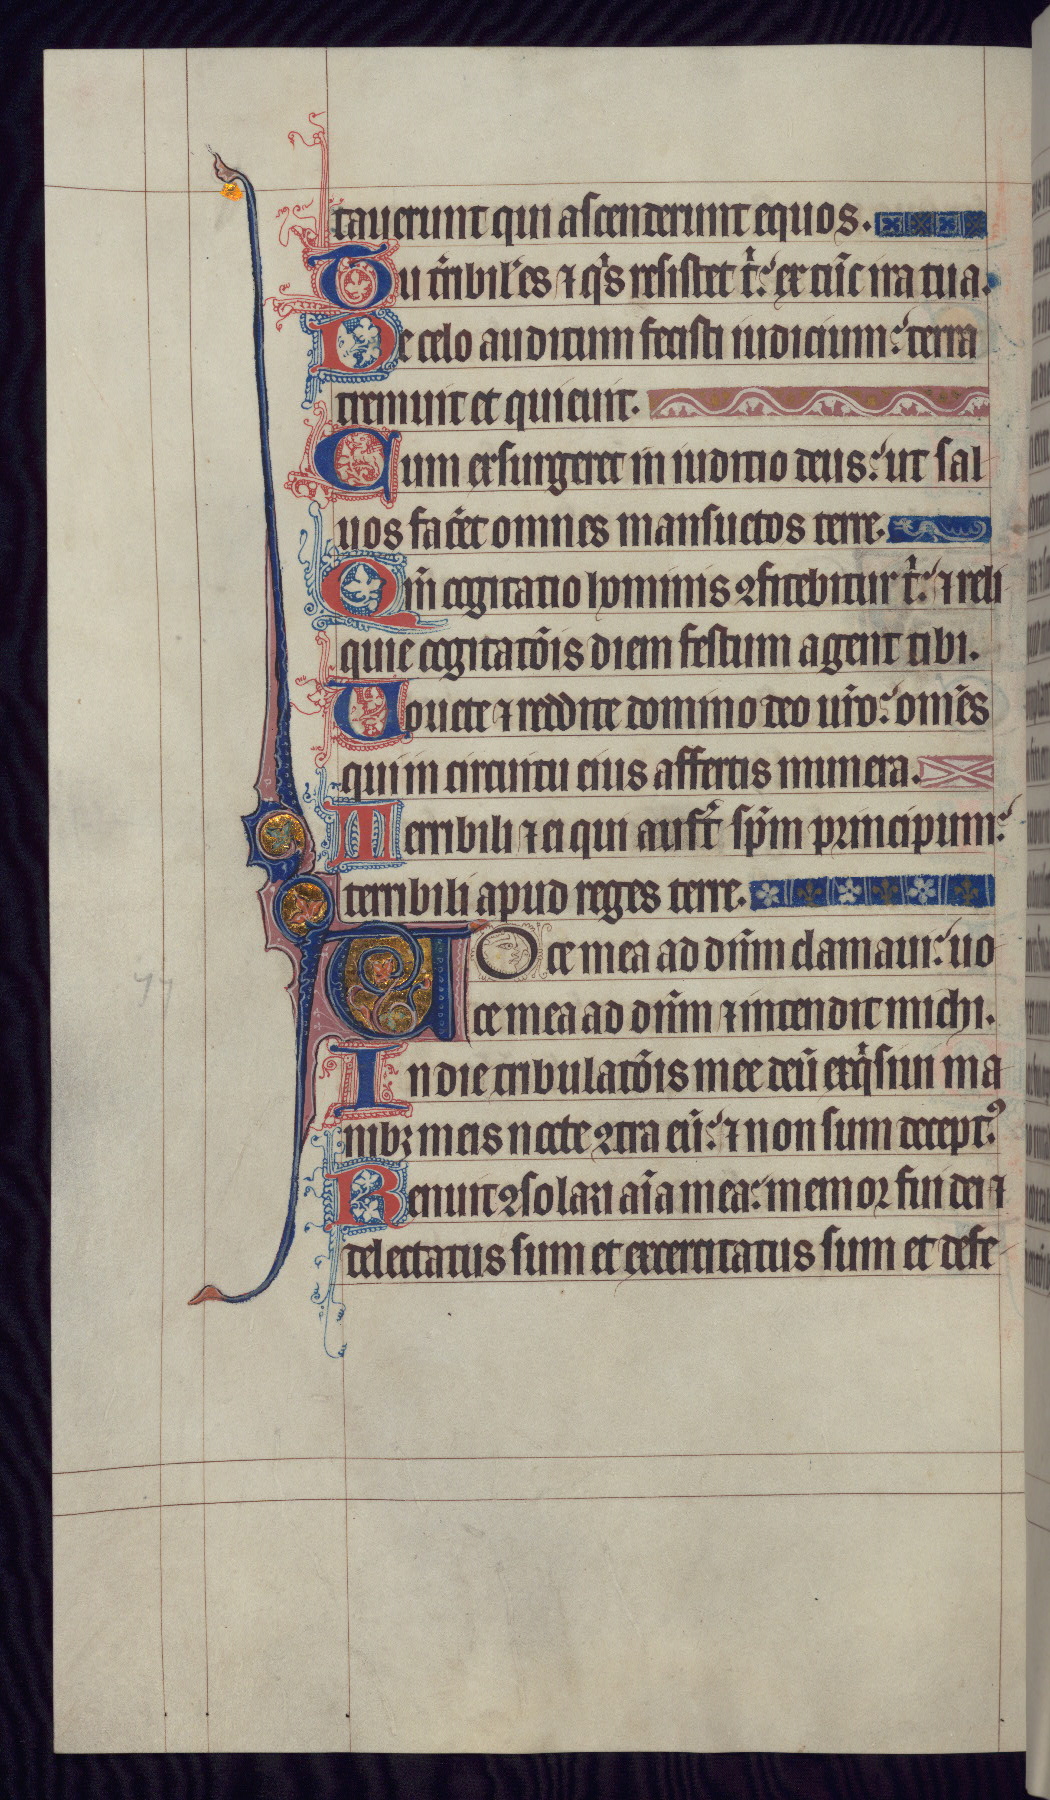 tauerunt qui ascenderunt equos.
Tu t̾ribil̾es ⁊ q̾s resistet t̾: ex tūc ira tua.
De celo auditum fecisti iudicium: terra
tremuit et quieuit.
Cum exsurgeret in iudicio deus: ut sal
uos fac̾et omnes mansuetos terre.
Qm̄ cogitatio hominis ꝯfitebitur t̾: ⁊ reli
quie cogitatōis diem festum agent tibi.
Uouete ⁊ reddite domino deo ur̄o: omēs
qui in circuitu eius affertis munera.
Terribili ⁊ ei qui aufert sp̄m principum:
terribili apud reges terre.
Voce mea ad dn̄m clamaui: uo
ce mea ad dn̄m ⁊ intendit michi.
In die tribulatōis mee deū exq̾siui ma
nibꝫ meis nocte ꝯtra eū: ⁊ non sum deceptꝰ
Renuit ꝯsolari aīa mea: memor fui dei ⁊
delectatus sum et exercitatus sum et defe
77